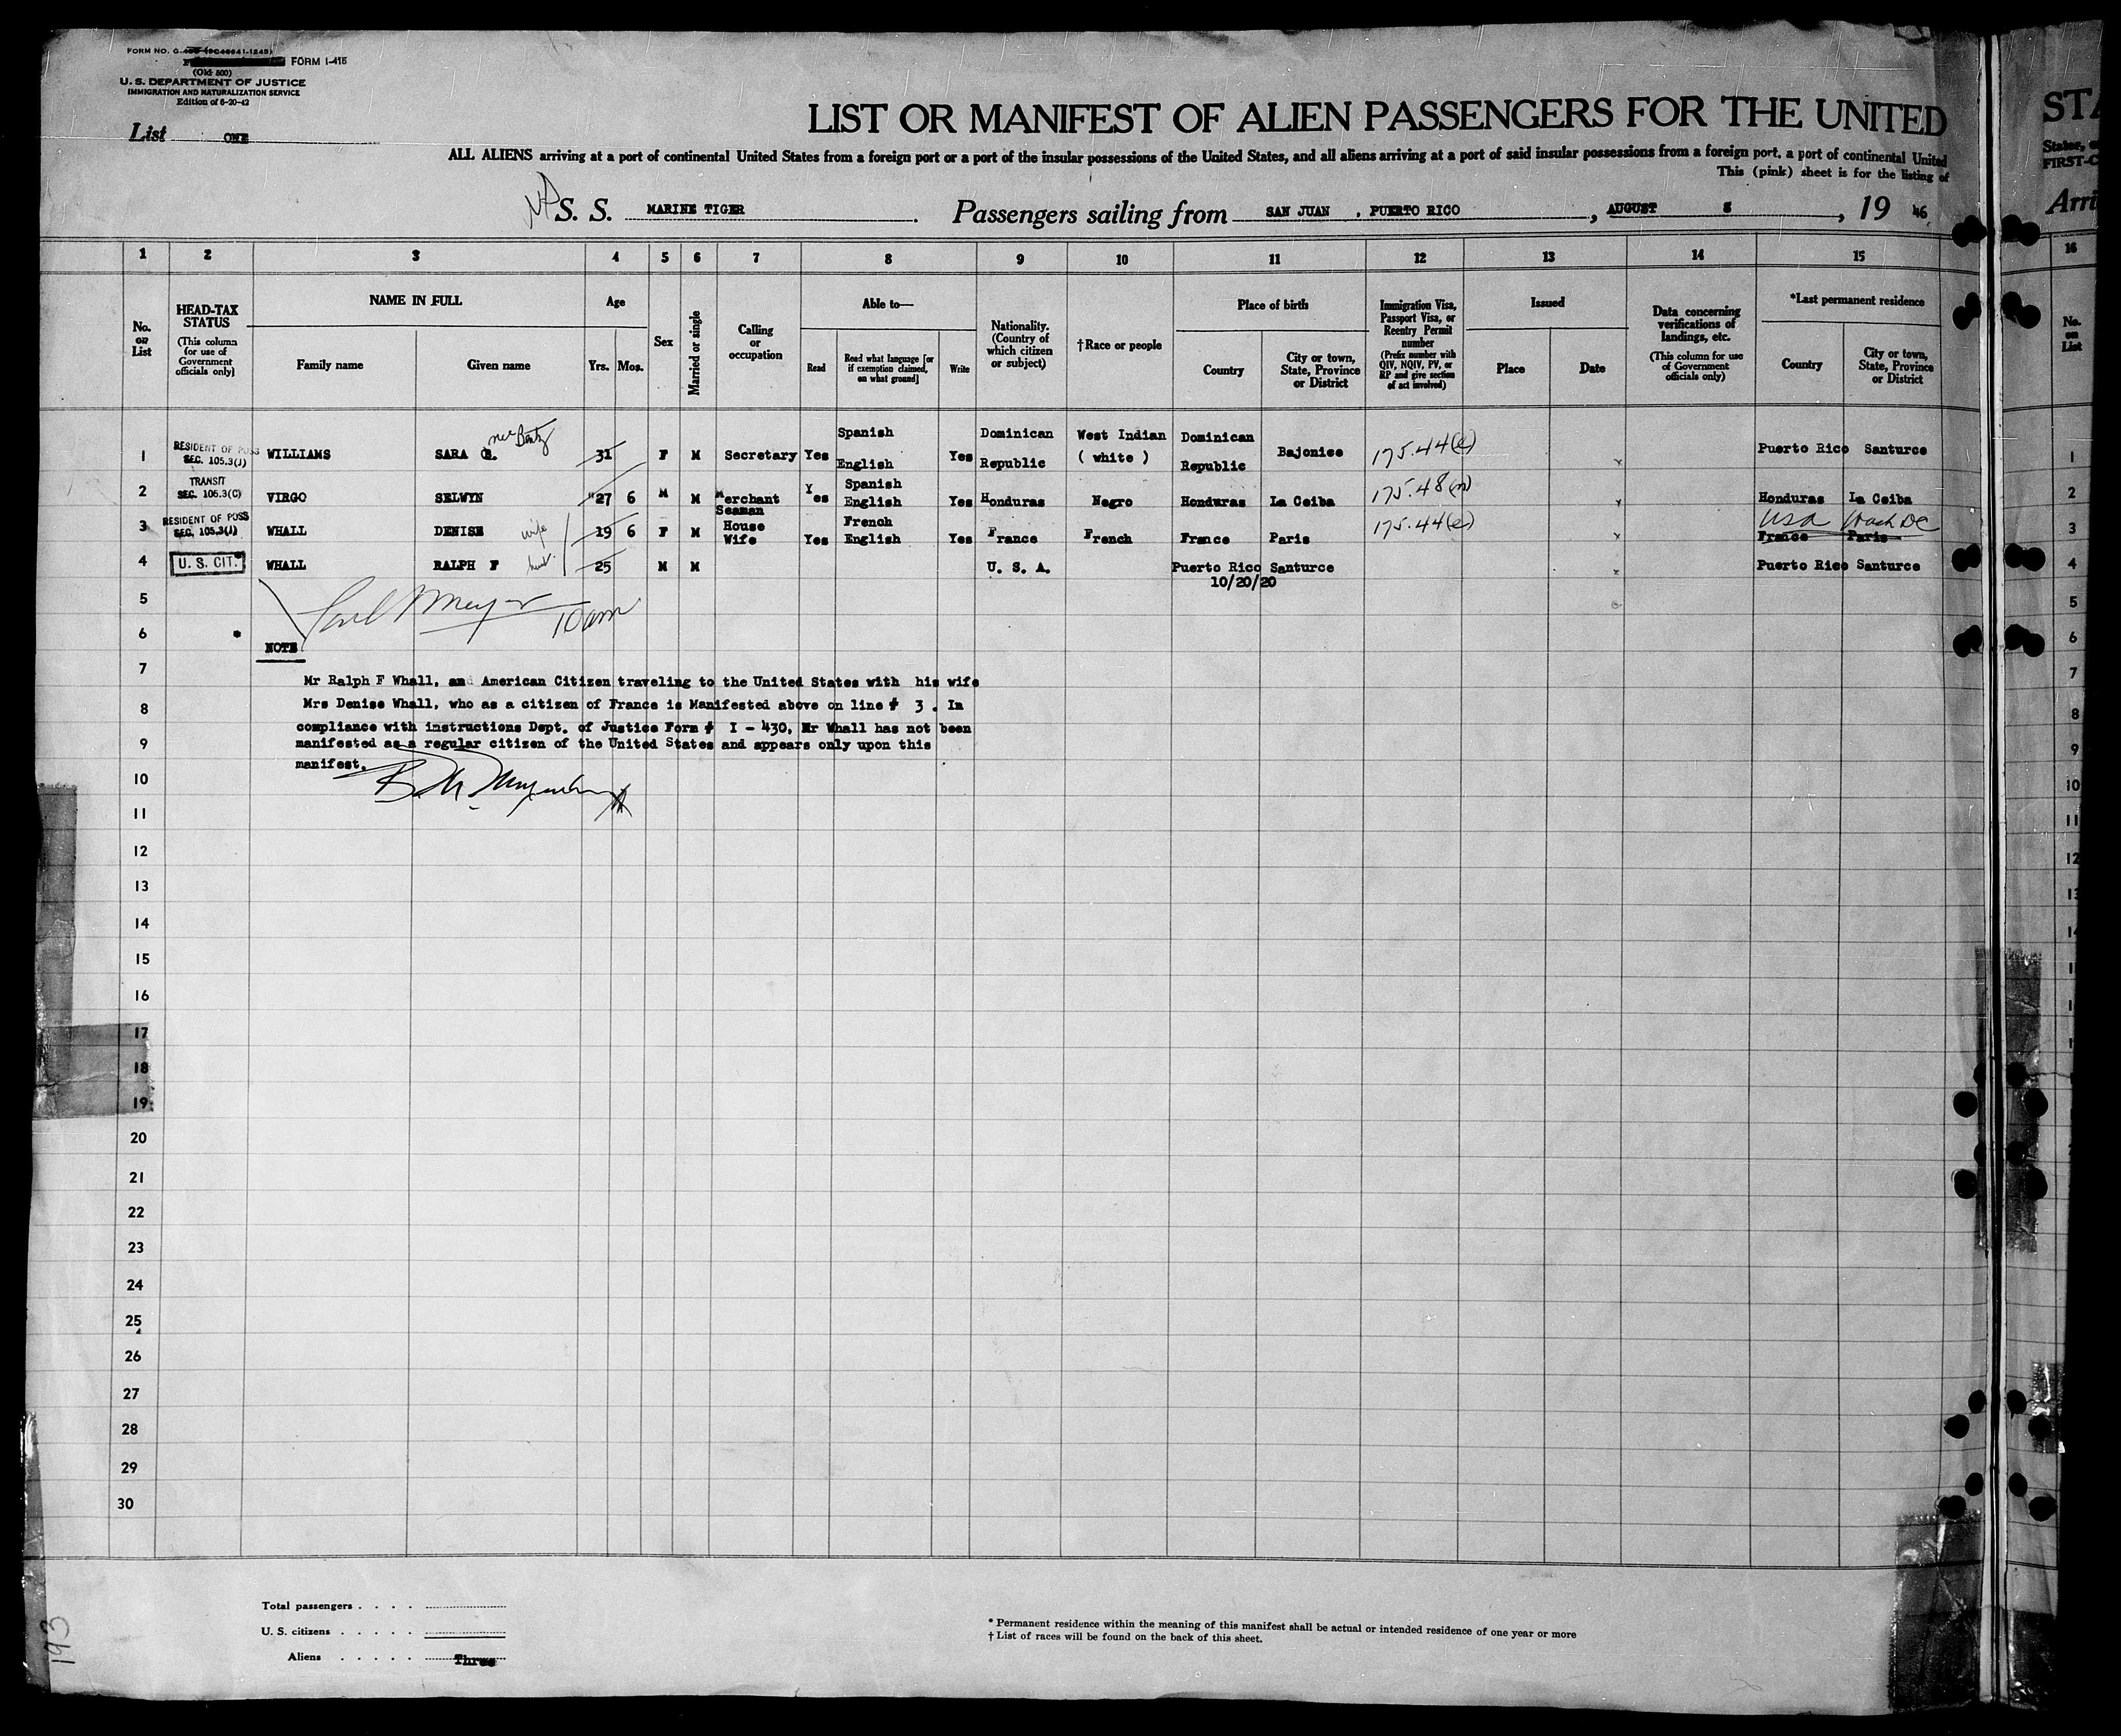 FORM NO. G-
FORM I-415
(Old 500)
U. S. DEPARTMENT OF JUSTICE
IMMIGRATION AND NATURALIZATION SERVICE
Edition of 6-20-42
List ONE
LIST OR MANIFEST OF ALIEN PASSENGERS FOR THE UNITED
STA
ALL ALIENS arriving at a port of continental United States from a foreign port or a port of the insular possessions of the United States, and all aliens arriving at a port of said insular possessions from a foreign port, a port of continental United
This (pink) sheet is for the listing of
States,
FIRST-C
S. S. MARINE TIGER Passengers sailing from SAN JUAN , PUERTO RICO , AUGUST 8 , 19 46
Arri
1 2 3 4 5 6 7 8 9 10 11 12 13 14 15 16
No. on List
HEAD-TAX STATUS
(This column for use of Government officials only)
NAME IN FULL
Family name
Given name
Age
Yrs.
Mos.
Sex
Married or single
Calling or occupation
Able to—
Read
Read what language [or if exemption claimed, on what ground]
Write
Nationality. (Country of which citizen or subject)
†Race or people
Place of birth
Country
City or town, State, Province or District
Immigration Visa, Passport Visa, or Reentry Permit number
(Prefix number with QIV, NQIV, PV, or RP and give section of act involved)
Issued
Place
Date
Data concerning verifications of landings, etc.
(This column for use of Government officials only)
*Last permanent residence
Country
City or town, State, Province or District
No. on List
1 RESIDENT OF POSS SEC. 105.3(J) WILLIAMS SARA nee 31 F M Secretary Yes Spanish English Yes Dominican Republic West Indian ( white ) Dominican Republic Bajonice 175.44(e) Puerto Rico Santurce 1
2 TRANSIT SEC. 105.3(C) VIRGO SELWYN 27 6 M M Merchant Seaman Yes Spanish English Yes Honduras Negro Honduras La Ceiba 175.48(n) Honduras La Ceiba 2
3 RESIDENT OF POSS SEC. 105.3(J) WHALL DENISE wife 19 6 F M House Wife Yes French English Yes France French France Paris 175.44(e) USA Wash DC France Paris 3
4 U. S. CIT. WHALL RALPH F husb. 25 M M U. S. A. Puerto Rico Santurce 10/20/20 Puerto Rico Santurce 4
5 5
10am
6 6
NOTE
7 7
Mr Ralph F Whall, and American Citizen traveling to the United States with his wife
8 Mrs Denise Whall, who as a citizen of France is Manifested above on line # 3 . In 8
compliance with instructions Dept. of Justice Form # I - 430, Mr Whall has not been
9 manifested as a regular citizen of the United States and appears only upon this 9
manifest.
10 10
11 11
12 12
13 13
14 14
15
16
17
18
19
20
21
22
23
24
25
26
27
28
29
30
Total passengers . . . .
U. S. citizens . . . . .
Aliens . . . . . Three
* Permanent residence within the meaning of this manifest shall be actual or intended residence of one year or more
† List of races will be found on the back of this sheet.
193